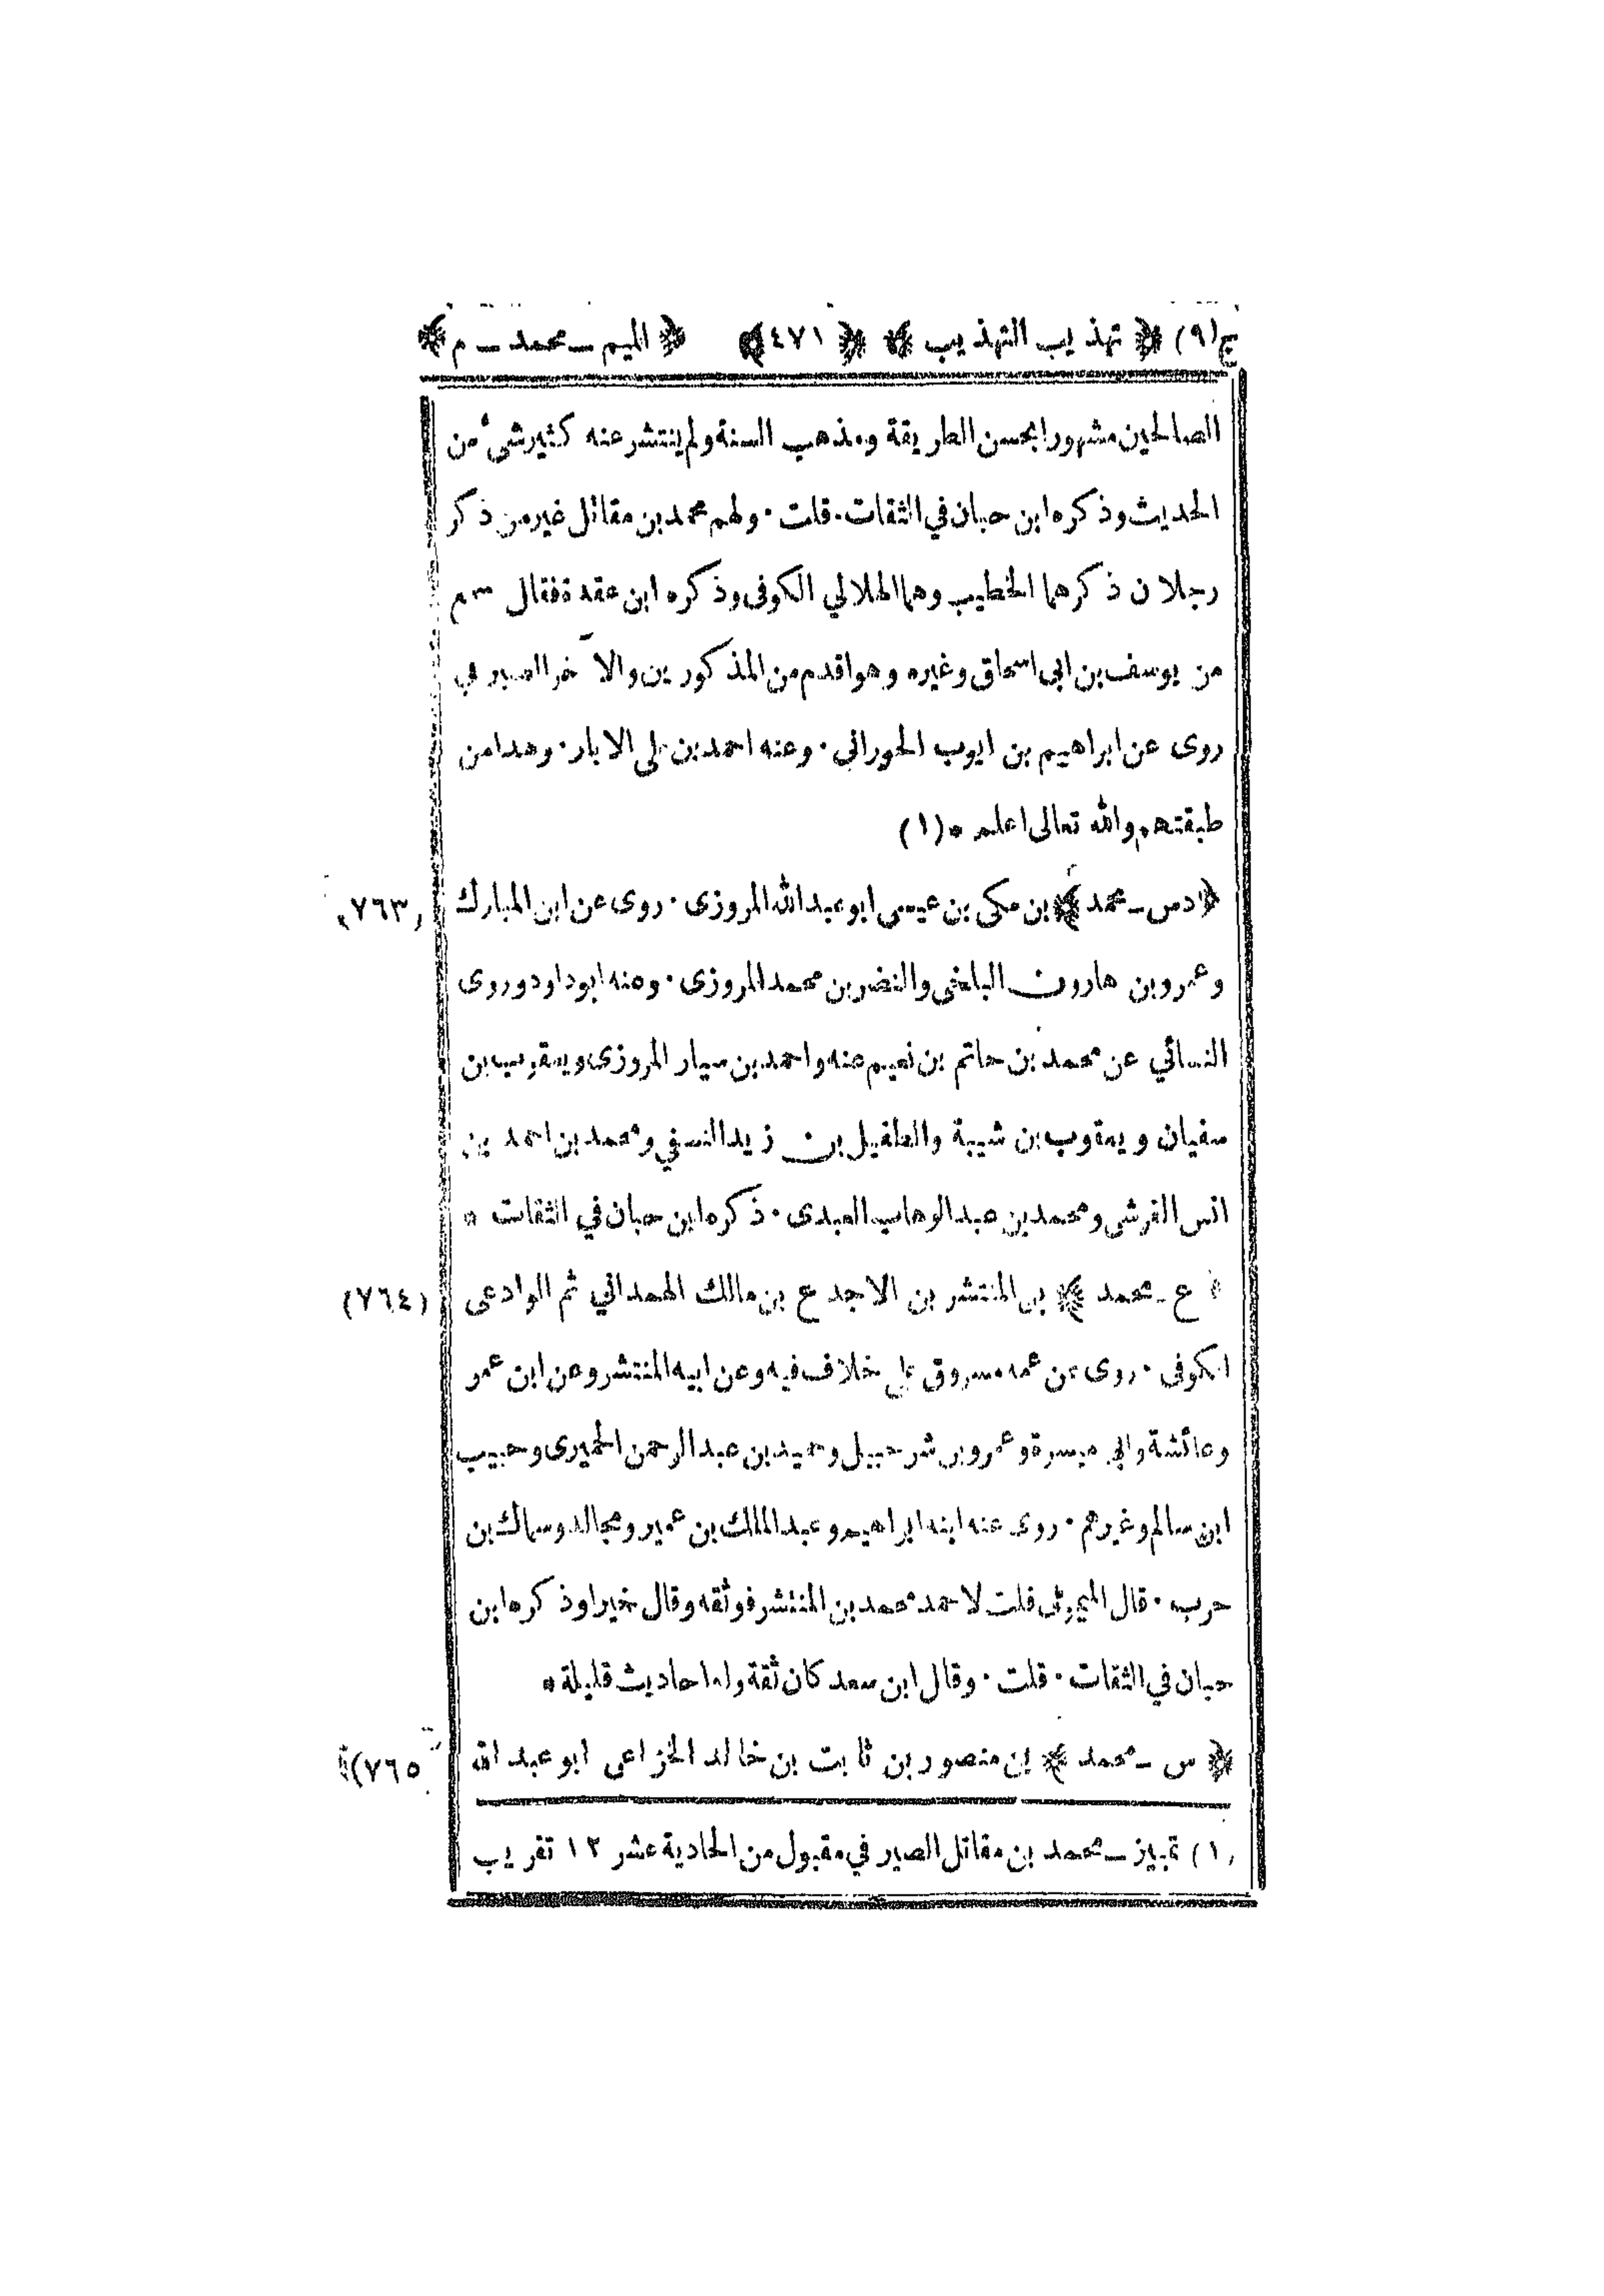 ج(٩) ﴿ تهذيب التهذيب ﴾ ﴿ ٤٧١ ﴾ ﴿ الميم ــ محمد ــ م ﴾
الصالحين مشهورا بحسن الطريقة ومذهب السنة ولم ينتشر عنه كثير شئ من
الحديث وذكره ابن حبان في الثقات ٠ قلت ٠ ولهم محمد بن مقاتل غير من ذكر
رجلان ذكرهما الخطيب وهما الهلالي الكوفى وذكره ابن عقدة فقال سمع
من يوسف بن ابى اسحاق وغيره وهو اقدم من المذكورين والآخر الصيرفي
روى عن ابراهيم بن ايوب الحوراني ٠ وعنه احمد بن على الابار ٠ وهذا من
طبقتهم والله تعالى اعلم * (١)
﴿ دس ــ محمد ﴾ بن مكى بن عيسى ابو عبد الله المروزى ٠ روى عن ابن المبارك (٧٦٣)
وعمرو بن هارون البلخى والنضر بن محمد المروزى ٠ وعنه ابو داود وروى
النسائي عن محمد بن حاتم بن نعيم عنه واحمد بن سيار المروزى ويعقوب بن
سفيان ويعقوب بن شيبة والطفيل بن زيد النسفي ومحمد بن احمد بن
انس القرشى ومحمد بن عبد الوهاب العبدى ٠ ذكره ابن حبان في الثقات *
﴿ ع ــ محمد ﴾ بن المنتشر بن الاجدع بن مالك الهمداني ثم الوادعى (٧٦٤)
الكوفى ٠ روى عن عمه مسروق على خلاف فيه وعن ابيه المنتشر وعن ابن عمر
وعائشة وابى ميسرة وعمرو بن شرحبيل وحميد بن عبد الرحمن الحميرى وحبيب
ابن سالم وغيرهم ٠ روى عنه ابنه ابراهيم وعبد الملك بن عمير ومجالد وسماك بن
حرب ٠ قال الميمونى قلت لاحمد محمد بن المنتشر فوثقه وقال خيرا وذكره ابن
حبان في الثقات ٠ قلت ٠ وقال ابن سعد كان ثقة وله احاديث قليلة *
﴿ س ــ محمد ﴾ بن منصور بن ثابت بن خالد الخزاعى ابو عبد الله (٧٦٥)
(١) تمييز ــ محمد بن مقاتل الصيرفي مقبول من الحادية عشر ١٢ تقريب